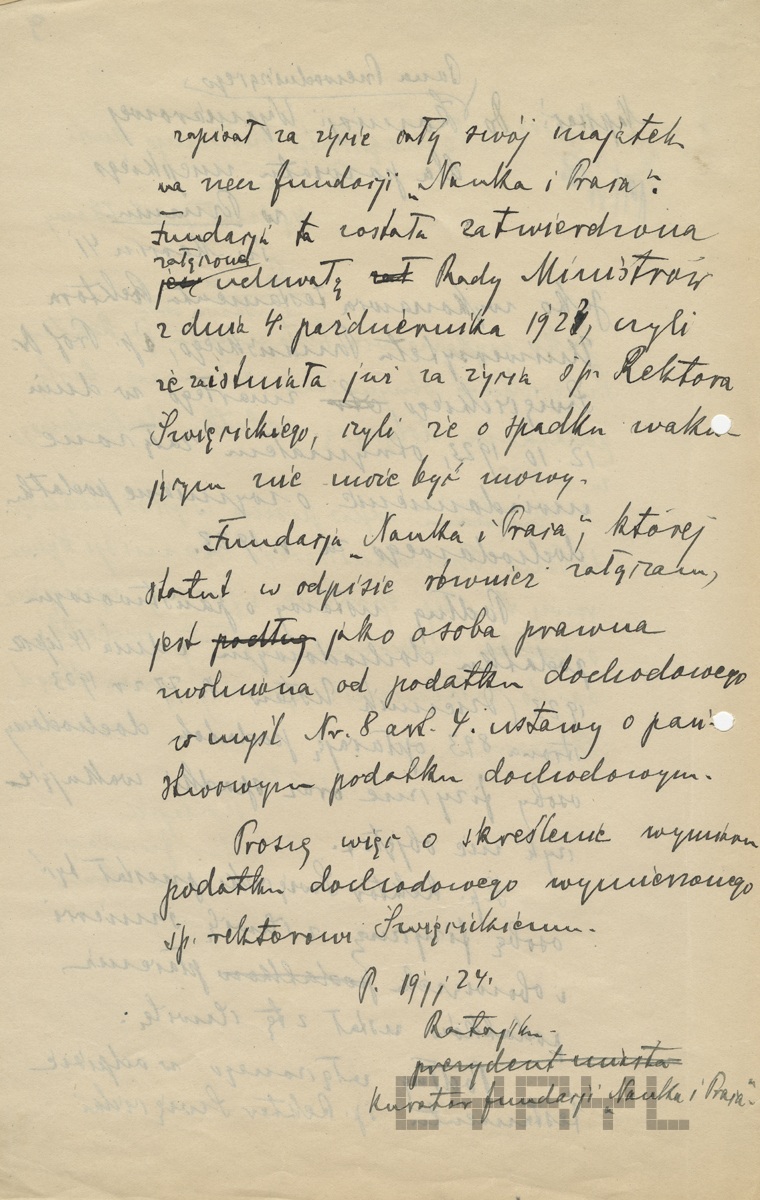 zapisał za życie cały swój majątek
na rzecz fundacji „Nauka i Praca“.
Fundacja ta została zatwierdzona
załączoną
jej uchwałą rat Rady Ministrów
z dnia 4. października 1922, czyli
że zaistniała już za życia śp. Rektora
Święcickiego, czyli że o spadku waku-
jącym nie może być mowy.
Fundacja „Nauka i Praca“, której
statut w odpisie również załączam,
jest podług jako osoba prawna
uwolniona od podatku dochodowego
w myśl Nr. 8 art. 4. ustawy o pań-
stwowym podatku dochodowym.
Proszę więc o skreślenie wymiaru
podatku dochodowego wymierzonego
śp. rektorowi Święcickiemu.
P. 19 24.
Ratajski
prezydent miasta
kurator fundacji „Nauka i Praca“.
CYRYL